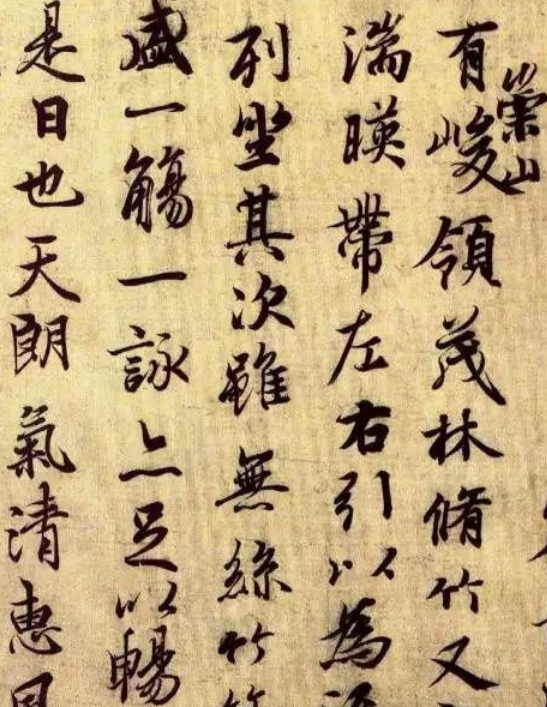 有崇山峻領茂林脩竹又
湍暎帶左右引以為
列坐其次雖無絲竹
盛一觴一詠亦足以暢
是日也天朗氣清惠